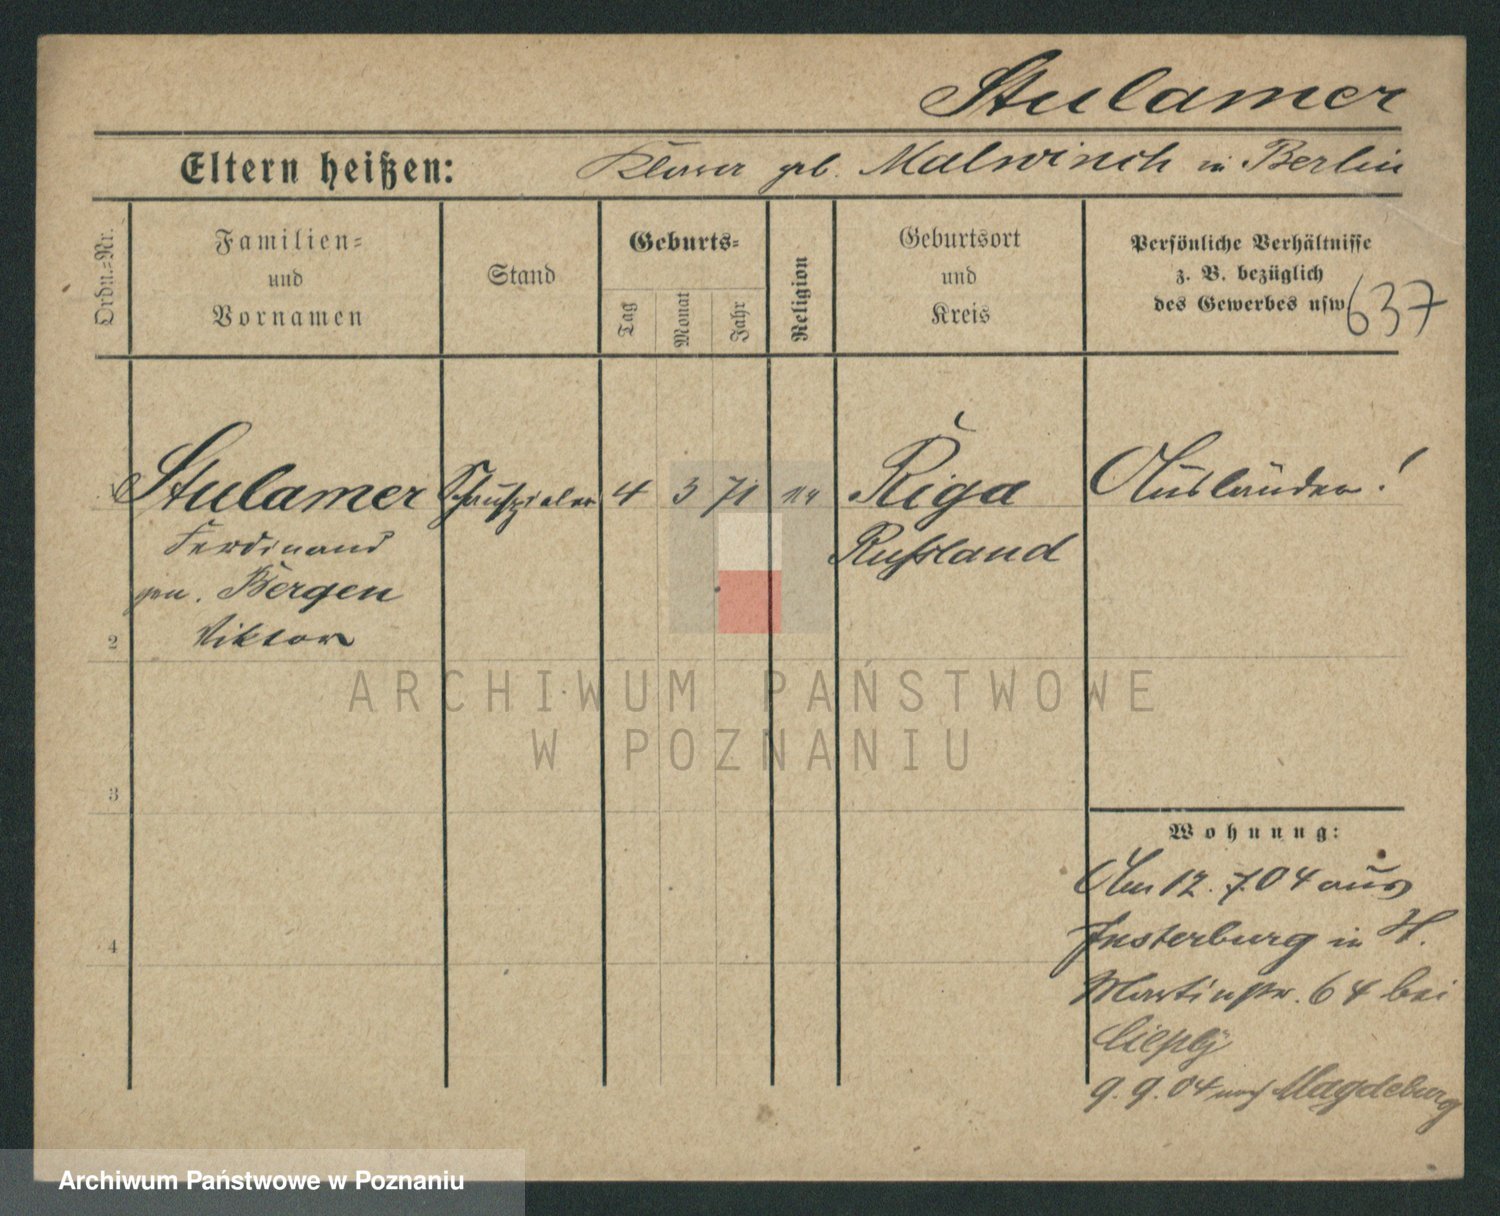 Stulamer
Eltern heißen: geb. Malwinch in Berlin
Ordn.=Nr.
Familien=
und
Vornamen
Stand
Geburts=
Tag
Monat
Jahr
Religion
Geburtsort
und
Kreis
Persönliche Verhältnisse
z. B. bezüglich
des Gewerbes usw.
637
1 Stulamer Schauspieler 4 3 71 Riga Ausländer!
Ferdinand Russland
gen. Bergen
Viktor
2
3
4
Wohnung:
Am 12.7.04 aus
Insterburg in H.
Martinstr. 64 bei
9.9.04 nach Magdeburg
ARCHIWUM PAŃSTWOWE
W POZNANIU
Archiwum Państwowe w Poznaniu